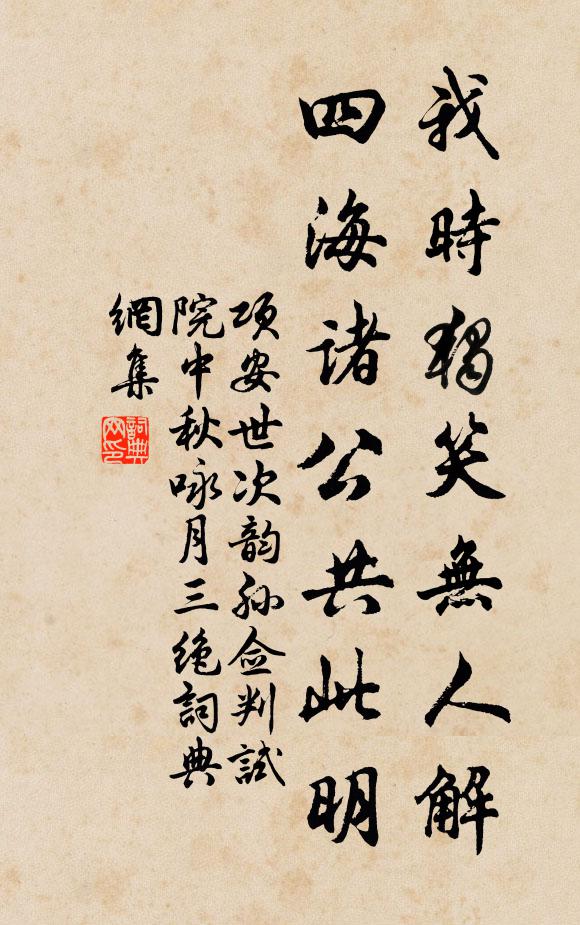 我時獨笑無人解
四海諸公共此明
項安世次韵孫僉判試
院中秋咏月三絶詞典
網集
詞典網印